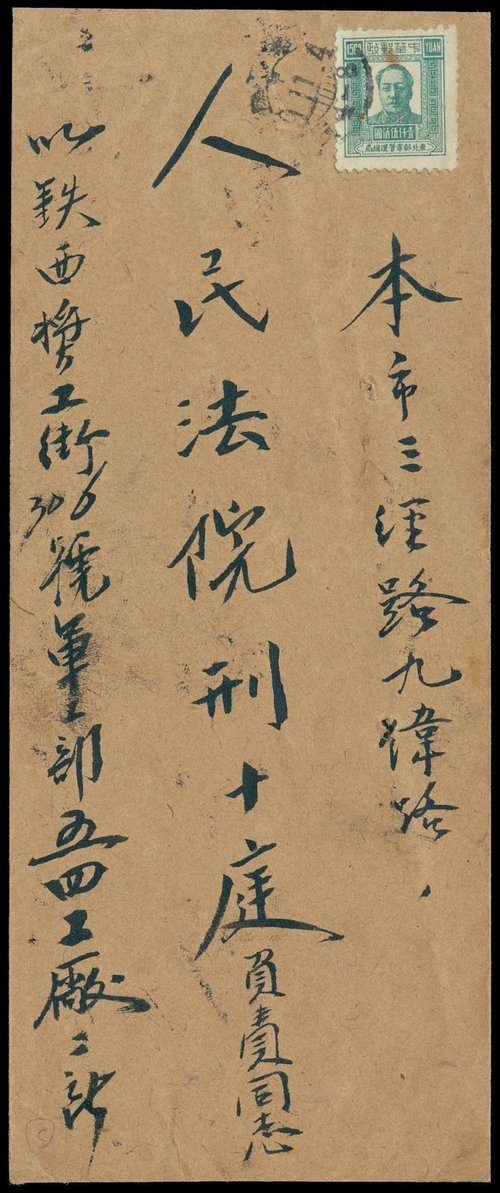 本市三经路九緯路,
人民法院刑十庭
負責同志
鉄西
工街306號軍工部五四工廠二
中華郵政
1500
YUAN
壹仟伍佰圓
東北郵電管理總局